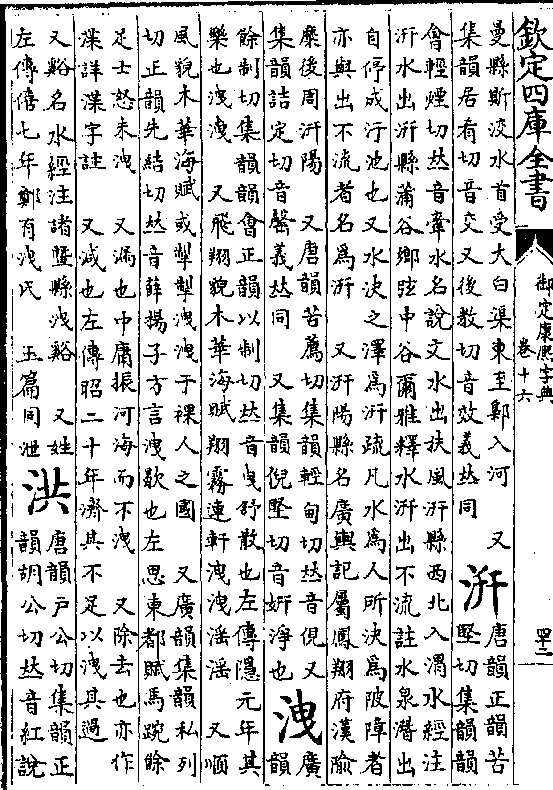 欽定四庫全書
御定康熙字典
卷十六
四二
曼縣斯洨水首受大白渠東至鄡入河　又
集韻居肴切音交又後教切音效義𠀤同
汧
唐韻正韻苦
堅切集韻韻
會輕煙切𠀤音牽水名說文水出扶風汧縣西北入渭水經注
汧水出汧縣蒲谷鄉弦中谷爾雅釋水汧出不流註水泉潛出
自停成汙池也又水決之澤爲汧疏凡水爲人所決爲陂障者
亦與出不流者名爲汧　又汧陽縣名廣輿記屬鳳翔府漢隃
糜後周汧陽　又唐韻苦薦切集韻輕甸切𠀤音俔又
集韻詰定切音罄義𠀤同　又集韻倪堅切音妍淨也
洩
廣
韻
餘制切集韻韻會正韻以制切𠀤音曳舒散也左傳隱元年其
樂也洩洩　又飛翔貌木華海賦翔霧連軒洩洩淫淫　又順
風貌木華海賦或掣掣洩洩于裸人之國　又廣韻集韻私列
切正韻先結切𠀤音薛揚子方言洩歇也左思東都賦馬踠餘
足士怒未洩　又漏也中庸振河海而不洩　又除去也亦作
渫詳渫字註　又減也左傳昭二十年濟其不足以洩其過
又谿名水經注諸暨縣洩谿　又姓
左傳僖七年鄭有洩氏　玉篇同泄
洪
唐韻戸公切集韻正
韻胡公切𠀤音紅說